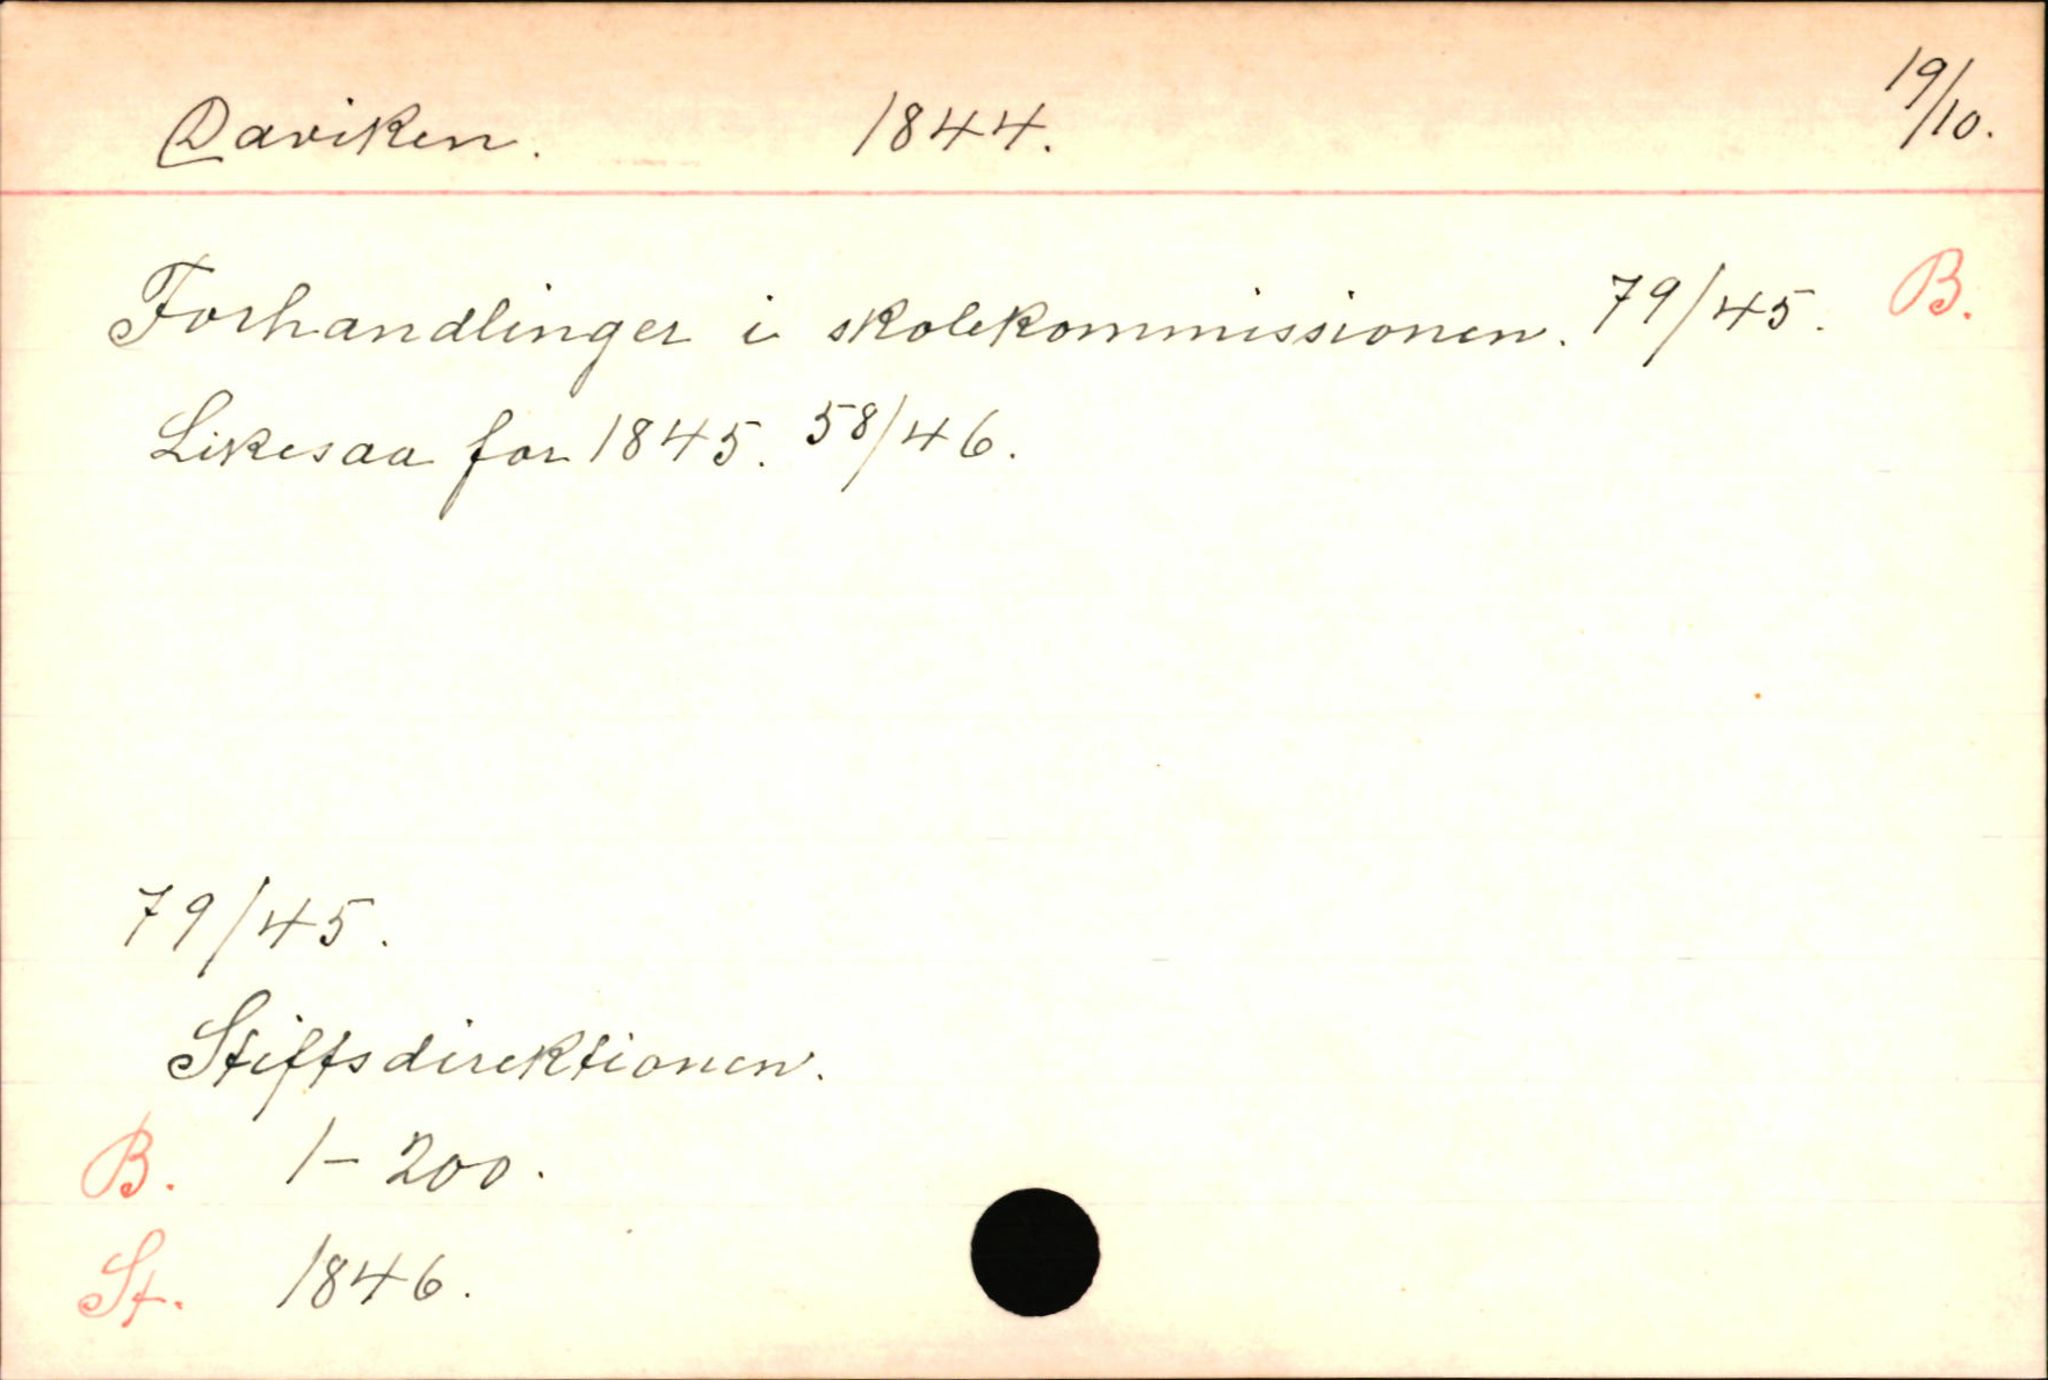 Daviken. 1844. 19/10.
Forhandlinger i skolekommissionen. 79/45. B.
Likesaa for 1845. 58/46.
79/45.
Stiftsdirektionen.
B. 1-200.
St. 1846.